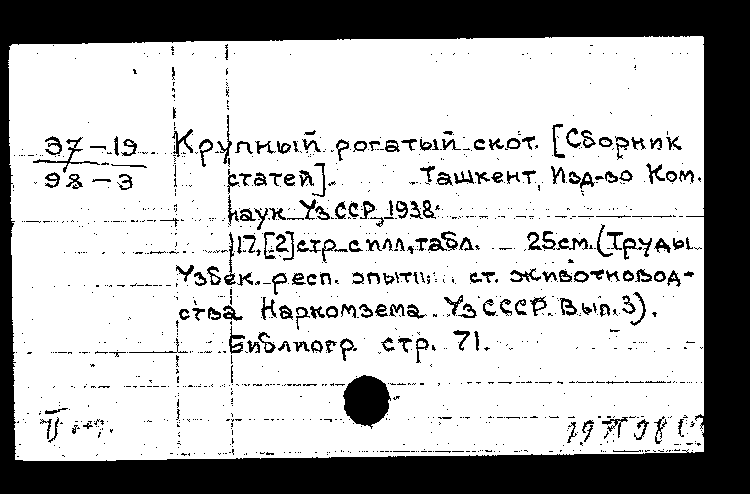 37-19
98-3
Крупный рогатый скот. [Сборник
статей]. Ташкент, Изд-во Ком.
наук УзССР, 1938.
117,[2]стр. с илл., табл. 25см. (Труды
Узбек. респ. опытн. ст. животновод-
ства Наркомзема УзСССР. Вып. 3).
Библиогр. стр. 71.